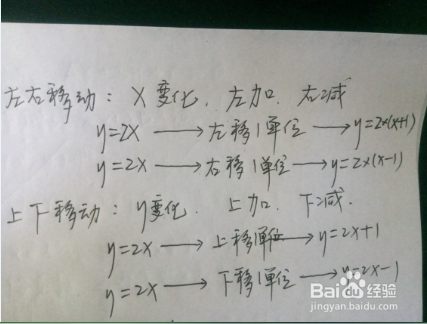 左右移动：X变化．左加．右减
y=2X → 左移1单位 → y=2×(x+1)
y=2X → 右移1单位 → y=2×(x-1)
上下移动：y变化．上加．下减．
y=2X → 上移1单位 → y=2x+1
y=2X → 下移1单位 → y=2x-1
Baidu经验
jingyan.baidu.com